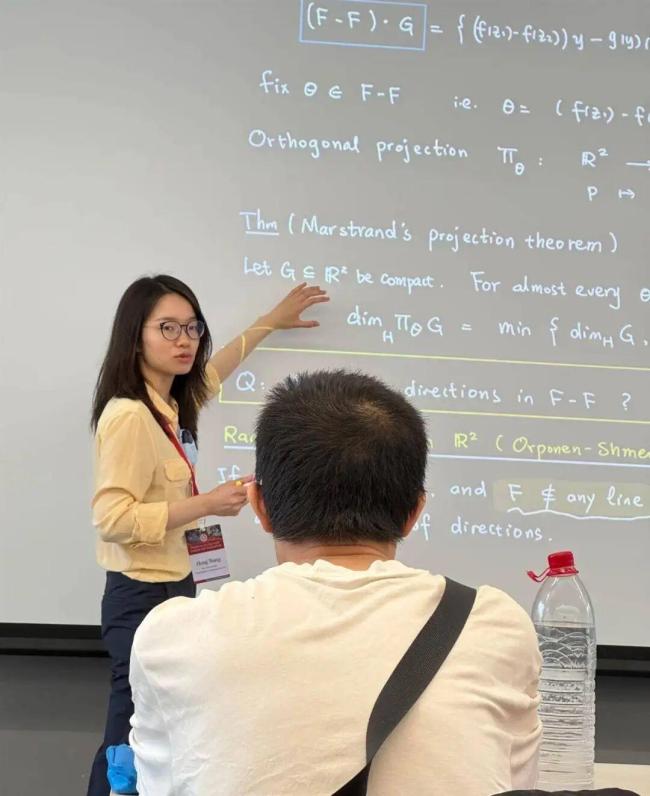 (F-F)·G = { (f(z₁)-f(z₂)) y - g(y)
fix θ ∈ F-F i.e. θ = (f(z₁) - f
Orthogonal projection π_θ : ℝ² →
p ↦
Thm (Marstrand's projection theorem)
Let G ⊆ ℝ² be compact. For almost every θ
dim_H π_θ G = min { dim_H G,
Q: directions in F-F ?
ℝ² (Orponen-Shme
If , and F ⊄ any line
of directions.
Hong Wang